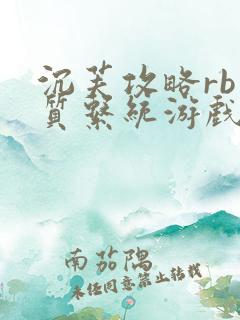 沉芙攻略rb
质系统游戏
南茄隅
未经同意禁止转载